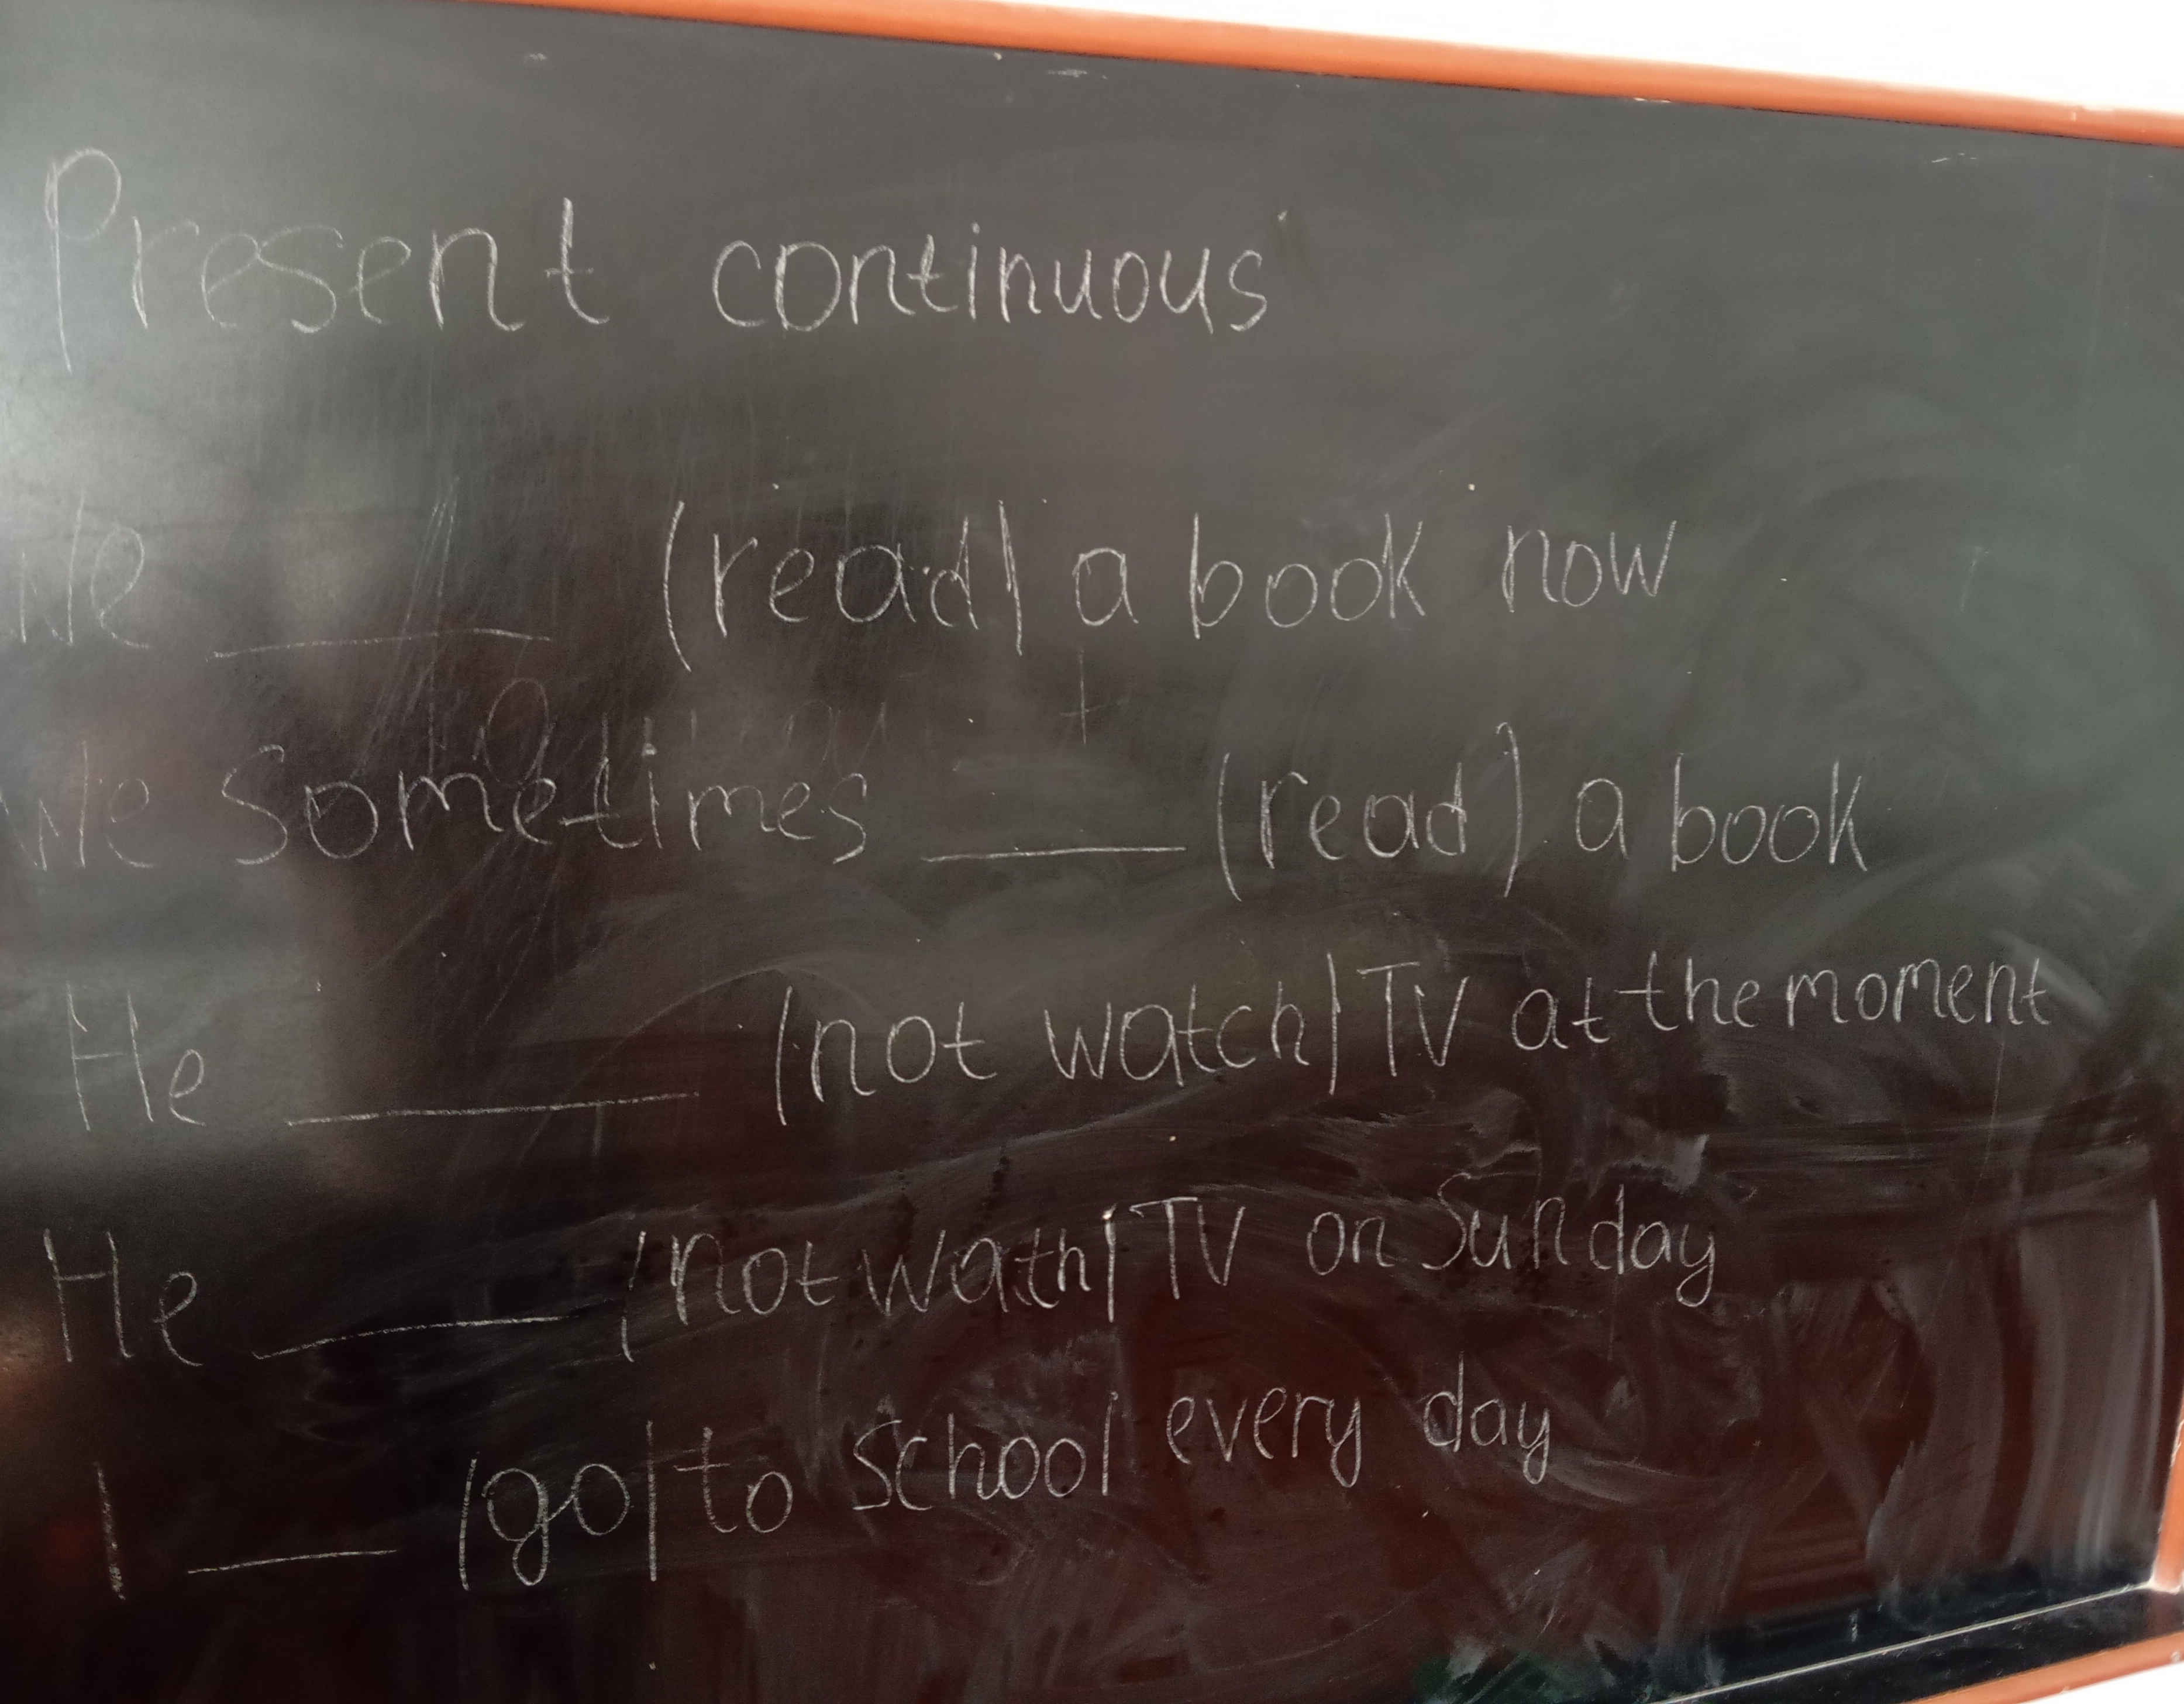 Present continuous
We ____ (read) a book now
We sometimes ____ (read) a book
He ____ (not watch) TV at the moment
He ____ (not wath) TV on Sunday
I ____ (go) to school every day